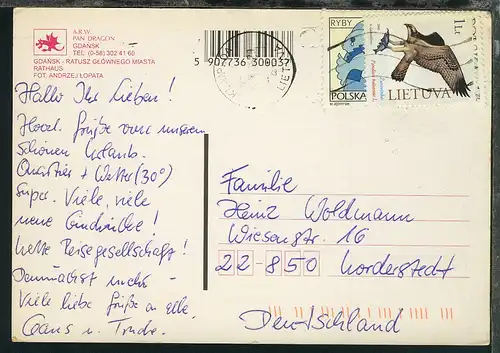 A.R.W.
PAN DRAGON
GDAŃSK
TEL. (0-58) 302 41 60
GDAŃSK - RATUSZ GŁÓWNEGO MIASTA
RATHAUS
FOT. ANDRZEJ ŁOPATA
5 907736 300037
RYBY
POLSKA
1 Lt
LIETUVA
Hallo Ihr Lieben!
Herzl. Grüße von unserem
schönen Urlaub.
Quartier + Wetter (30°)
super. Viele, viele
neue Eindrücke!
nette Reisegesellschaft!
Demnächst mehr -
Viele liebe Grüße an alle
u. Trude.
Familie
Heinz Woldmann
Wiesenstr. 16
22-850 Norderstedt
Deutschland